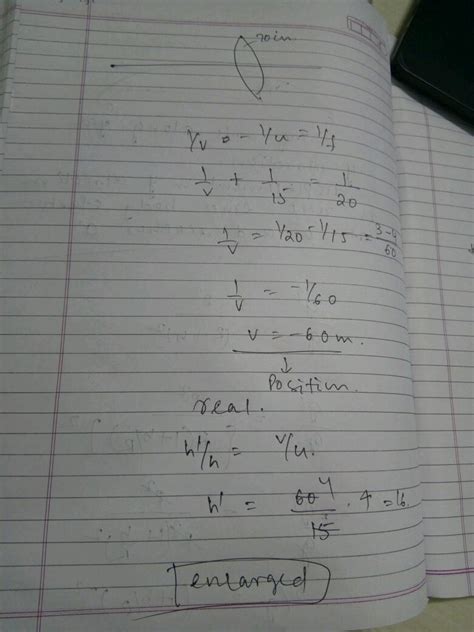 1/v - 1/u = 1/f
1/v + 1/15 = 1/20
1/v = 1/20 - 1/15 = 3-4/60
1/v = -1/60
v = -60m.
↓
Position
real.
h'/h = v/u.
h' = 60 4/15 . 4 = 16.
enlarged